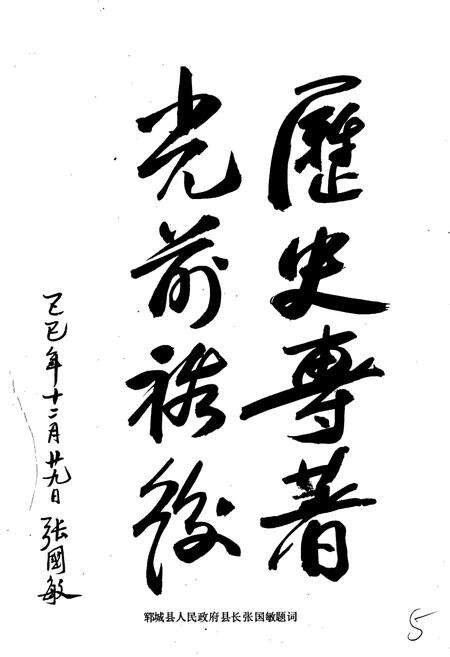 歷史專著
光前裕後
己巳年十二月廿九日 張國敏
郓城县人民政府县长张国敏题词
5